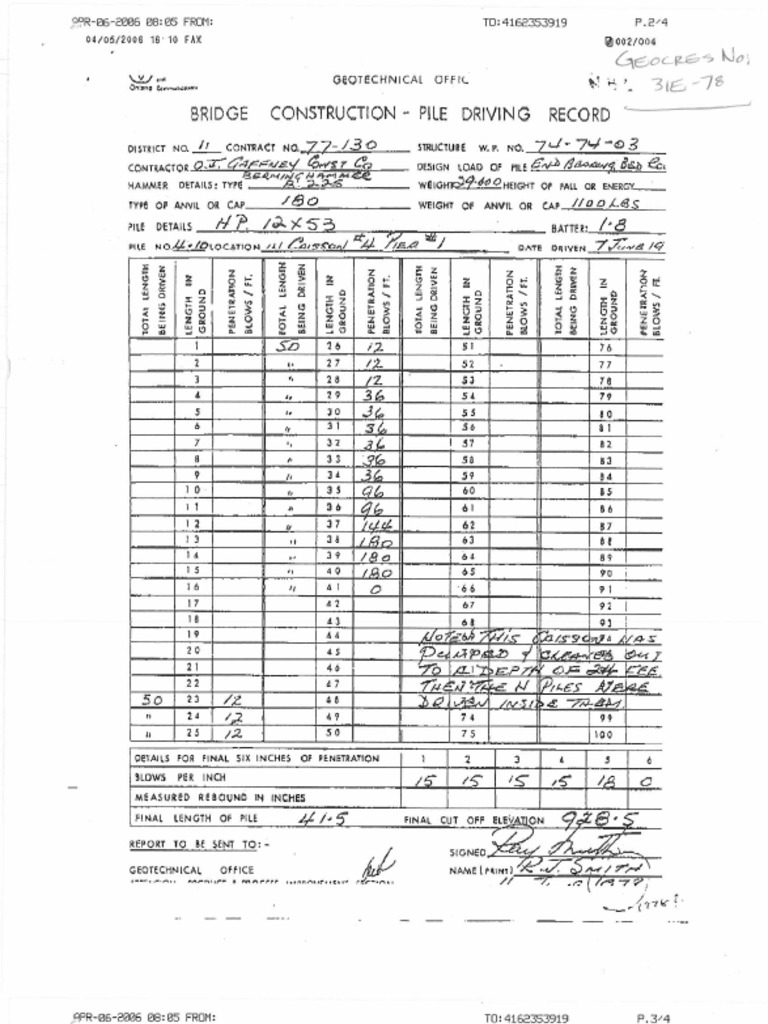 APR-06-2006 08:05 FROM: TO:4162353919 P.2/4
04/05/2006 16:10 FAX 002/004
GEOCRES No:
31E-78
GEOTECHNICAL OFFIC
BRIDGE CONSTRUCTION - PILE DRIVING RECORD
DISTRICT NO. 11 CONTRACT NO. 77-130 STRUCTURE W.P. NO. 74-74-03
CONTRACTOR O.J. GAFFNEY CONST CO DESIGN LOAD OF PILE END BEARING BED RO
BERMINGHAMMER
HAMMER DETAILS: TYPE B.225 WEIGHT 29.600 HEIGHT OF FALL OR ENERGY
TYPE OF ANVIL OR CAP 180 WEIGHT OF ANVIL OR CAP 1100 LBS
PILE DETAILS HP. 12X53 BATTER: 1·8
PILE NO. 4-10 LOCATION IN CAISSON #4 PIER #1 DATE DRIVEN 7 JUNE 19
TOTAL LENGTH BEING DRIVEN LENGTH IN GROUND PENETRATION BLOWS / FT. TOTAL LENGTH BEING DRIVEN LENGTH IN GROUND PENETRATION BLOWS / FT. TOTAL LENGTH BEING DRIVEN LENGTH IN GROUND PENETRATION BLOWS / FT. TOTAL LENGTH BEING DRIVEN LENGTH IN GROUND PENETRATION BLOWS / FT.
1 50 26 12 51 76
2 " 27 12 52 77
3 " 28 12 53 78
4 " 29 36 54 79
5 " 30 36 55 80
6 " 31 36 56 81
7 " 32 36 57 82
8 " 33 36 58 83
9 " 34 36 59 84
10 " 35 96 60 85
11 " 36 96 61 86
12 " 37 144 62 87
13 " 38 180 63 88
14 " 39 180 64 89
15 " 40 180 65 90
16 " 41 0 66 91
17 42 67 92
18 43 68 93
19 44 NOTE THIS CAISSON WAS
20 45 PUMPED & CLEANED OUT
21 46 TO A DEPTH OF 24 FEE
22 47 THEN THE H PILES WERE
50 23 12 48 DRIVEN INSIDE THEM.
" 24 12 49 74 99
" 25 12 50 75 100
DETAILS FOR FINAL SIX INCHES OF PENETRATION 1 2 3 4 5 6
BLOWS PER INCH 15 15 15 15 18 0
MEASURED REBOUND IN INCHES
FINAL LENGTH OF PILE 41.5 FINAL CUT OFF ELEVATION 928.5
REPORT TO BE SENT TO:-
SIGNED
GEOTECHNICAL OFFICE NAME (PRINT) R.J. SMITH
APR-06-2006 08:05 FROM: TO:4162353919 P.3/4